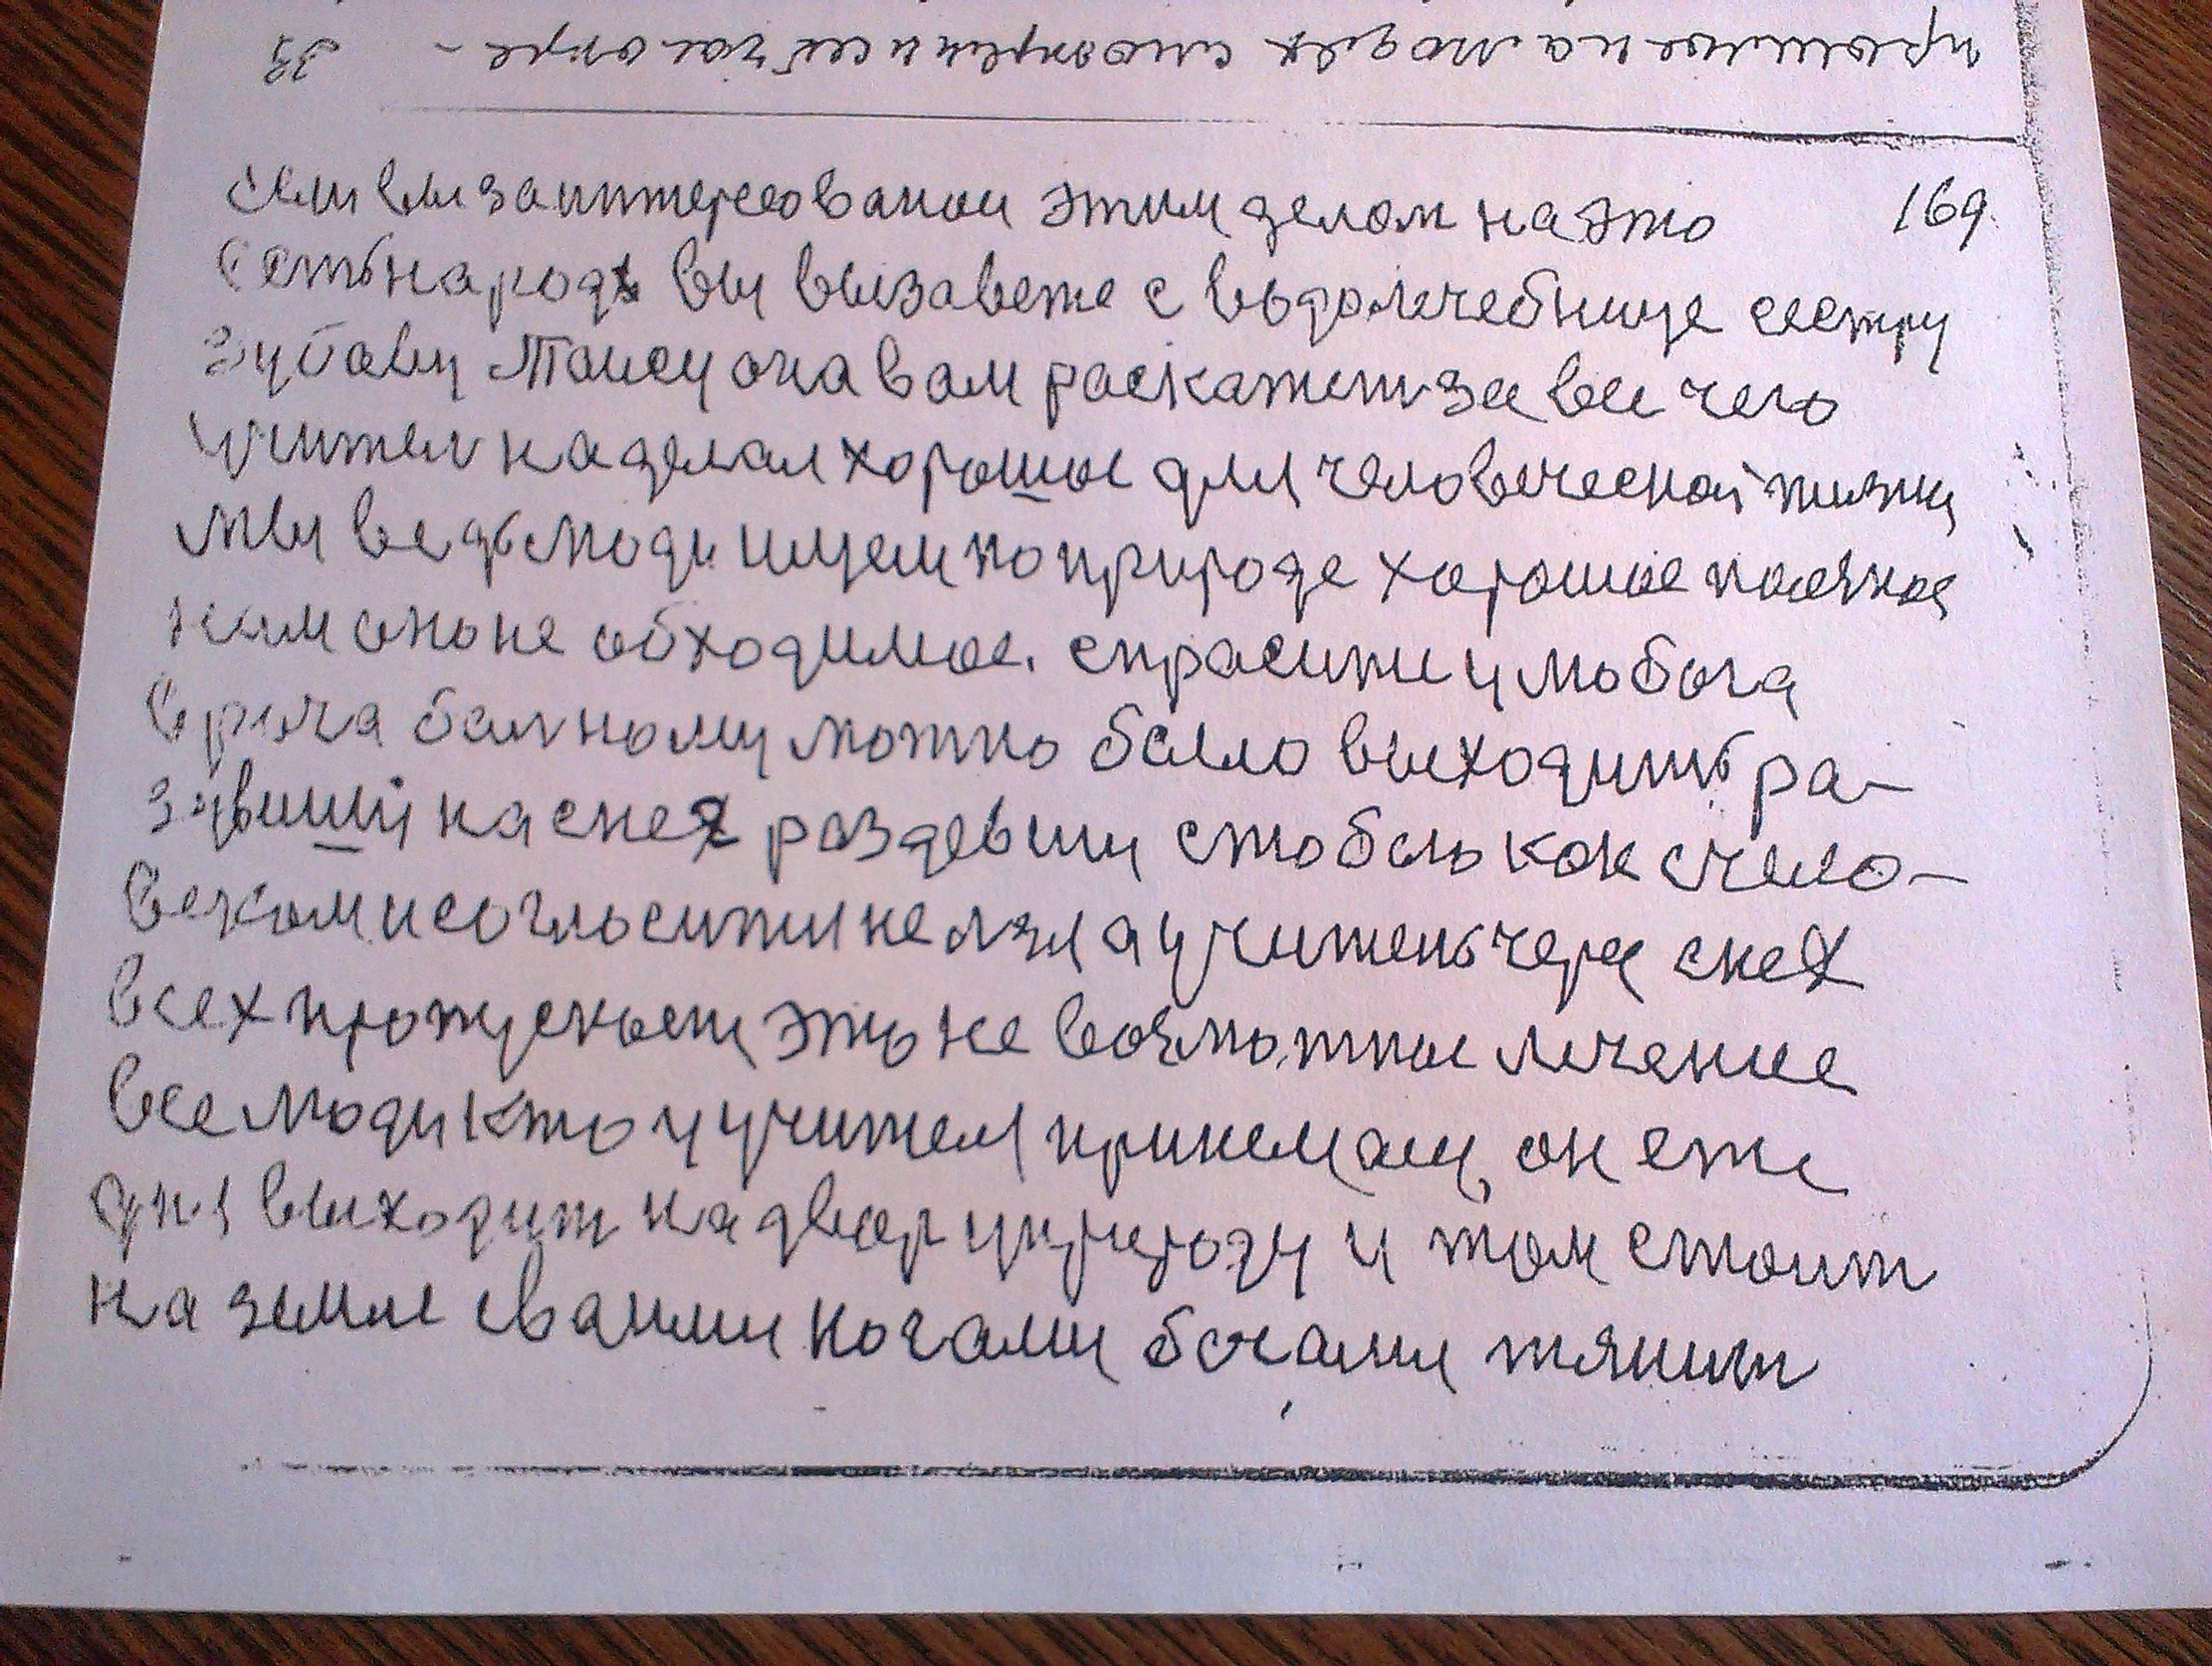 прошлое на людях смотрели и сейчас опре- 33
169
если вы заинтересованои этим делом на это
есть народ вы вызавете с водолечебнице сестру
зубову Таису она вам раскажет за все чего
учител наделал хорошое для человеческой жизни
мы ведь люди ищем по природе хорошое полезное
нам оно не обходимое. спросите у любога
врача болному можно было выходить ра-
зувший на снех раздевши с тобою как с чело-
веком и согласитти нелзя а учитель через снех
всех пропускает это не возможное лечение
все люди кто у учителя принемали, он еже
дня выходит на двор у природу и там стоит
на земле сваими ногами босами тянит